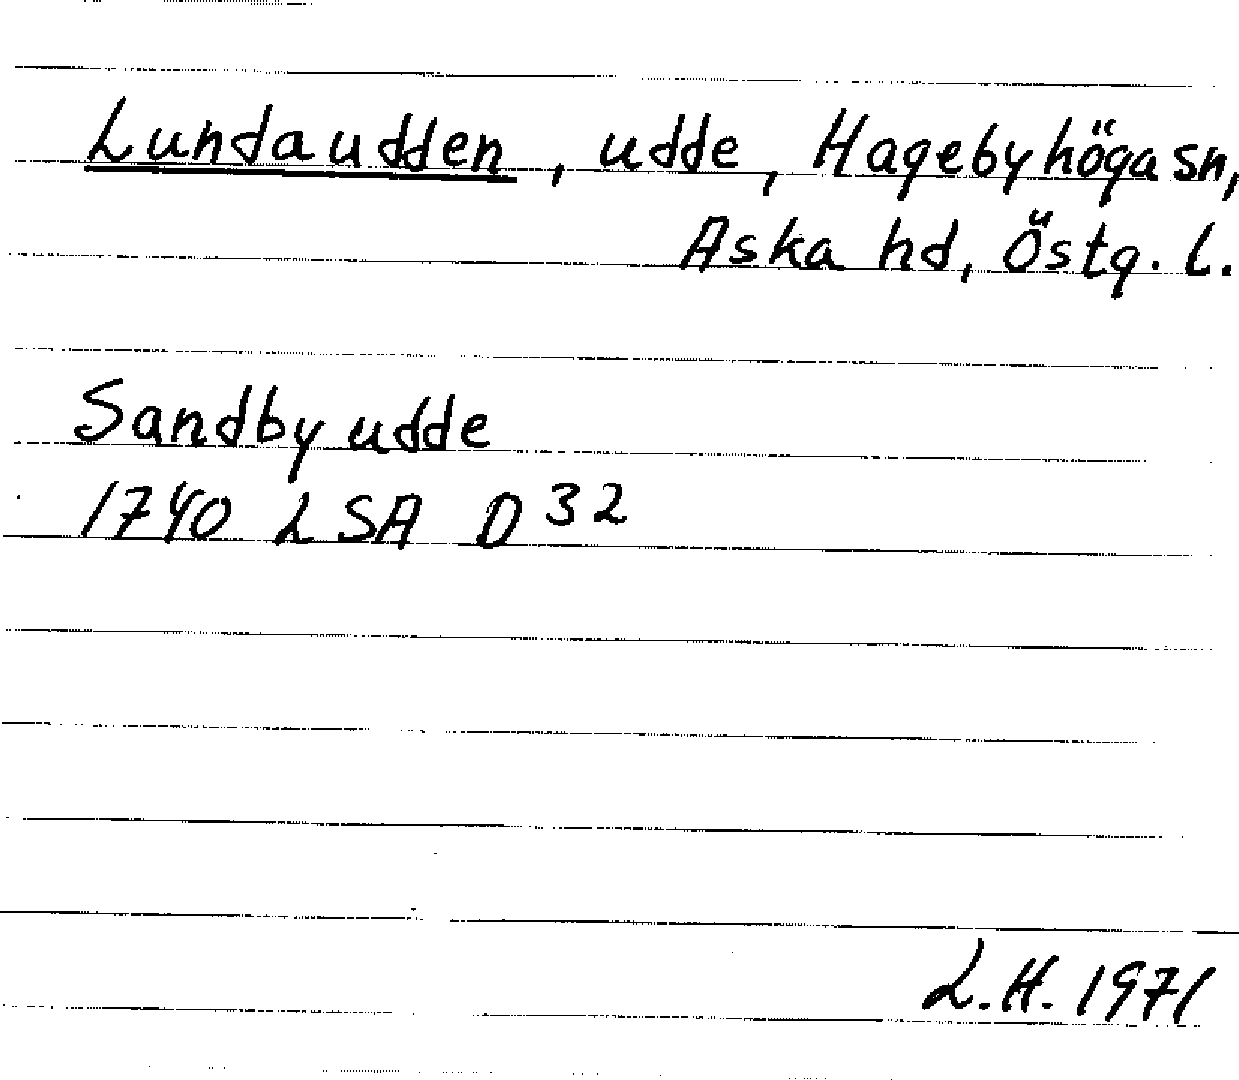 Lundaudden, udde, Hagebyhöga sn,
Aska hd, Östg. l.
Sandby udde
1740 LSA D 32
L.H. 1971